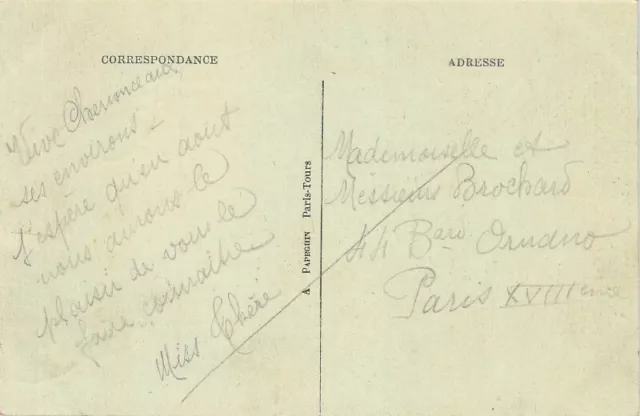 CORRESPONDANCE
Vive Chenonceaux
ses environs –
J'espère qu'en août
nous aurons le
plaisir de vous le
faire connaître
Miss
A PAPEGHIN Paris-Tours
ADRESSE
Mademoiselle et
Messieurs Brochard
44 Bard Ornano
Paris XVIIIème